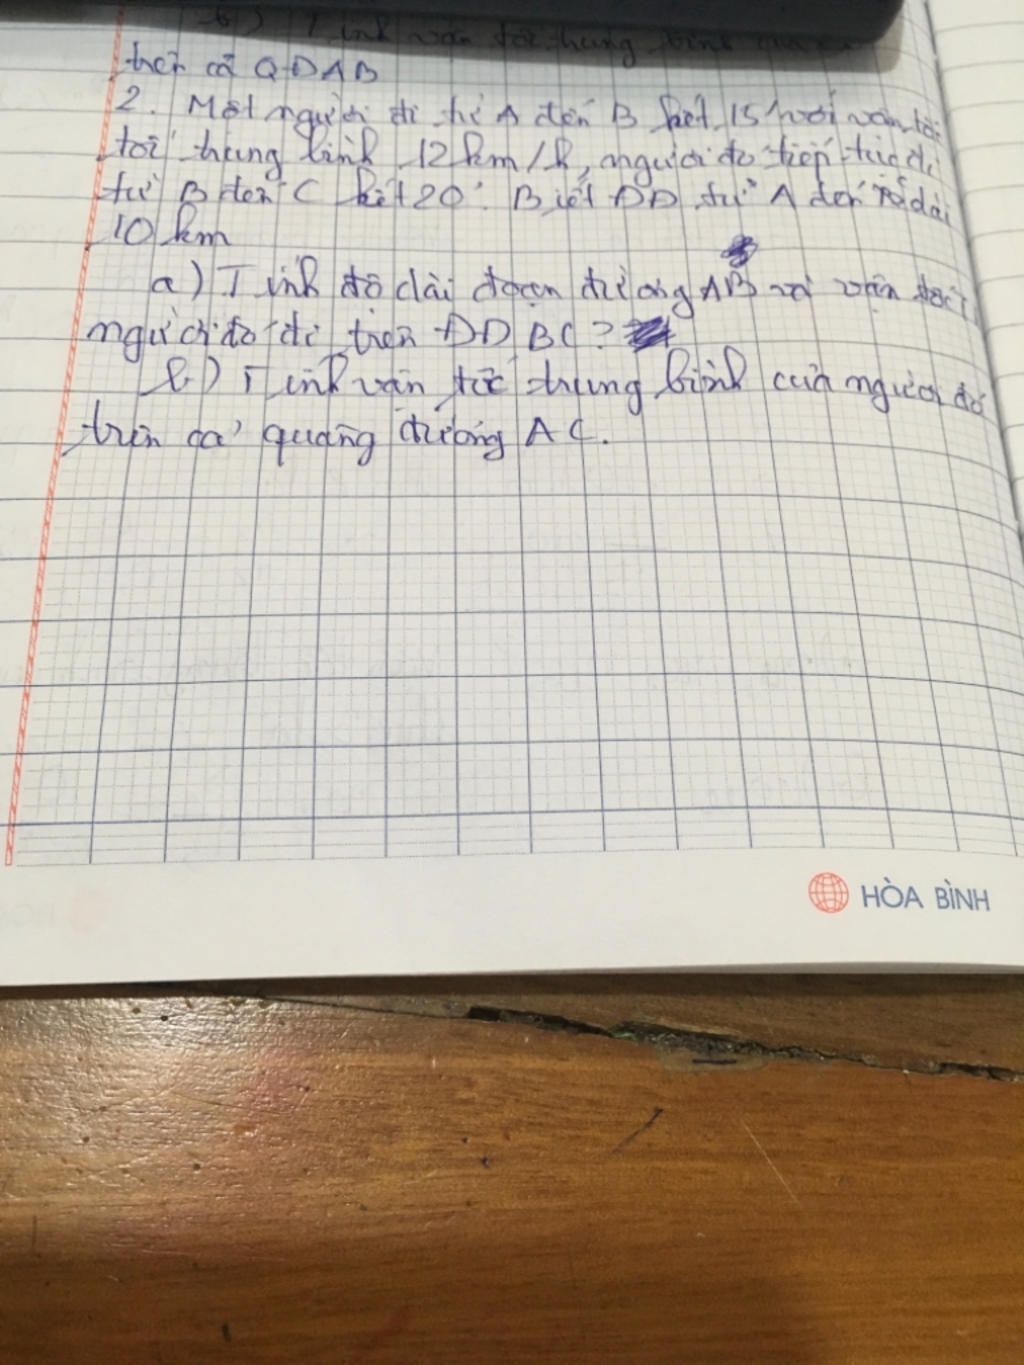 b) Tính vận tốc trung bình
trên cả QĐAB
2. Một người đi từ A đến B hết 15' với vận tốc
tối trung bình 12km/h, người đó tiếp tục đi
từ B đến C hết 20'. Biết ĐĐ từ A đến dài
10 km
a) Tính độ dài đoạn đường AB và vận tốc
người đó đi trên ĐĐ BC?
b) Tính vận tốc trung bình của người đó
trên cả quãng đường AC.
HÒA BÌNH